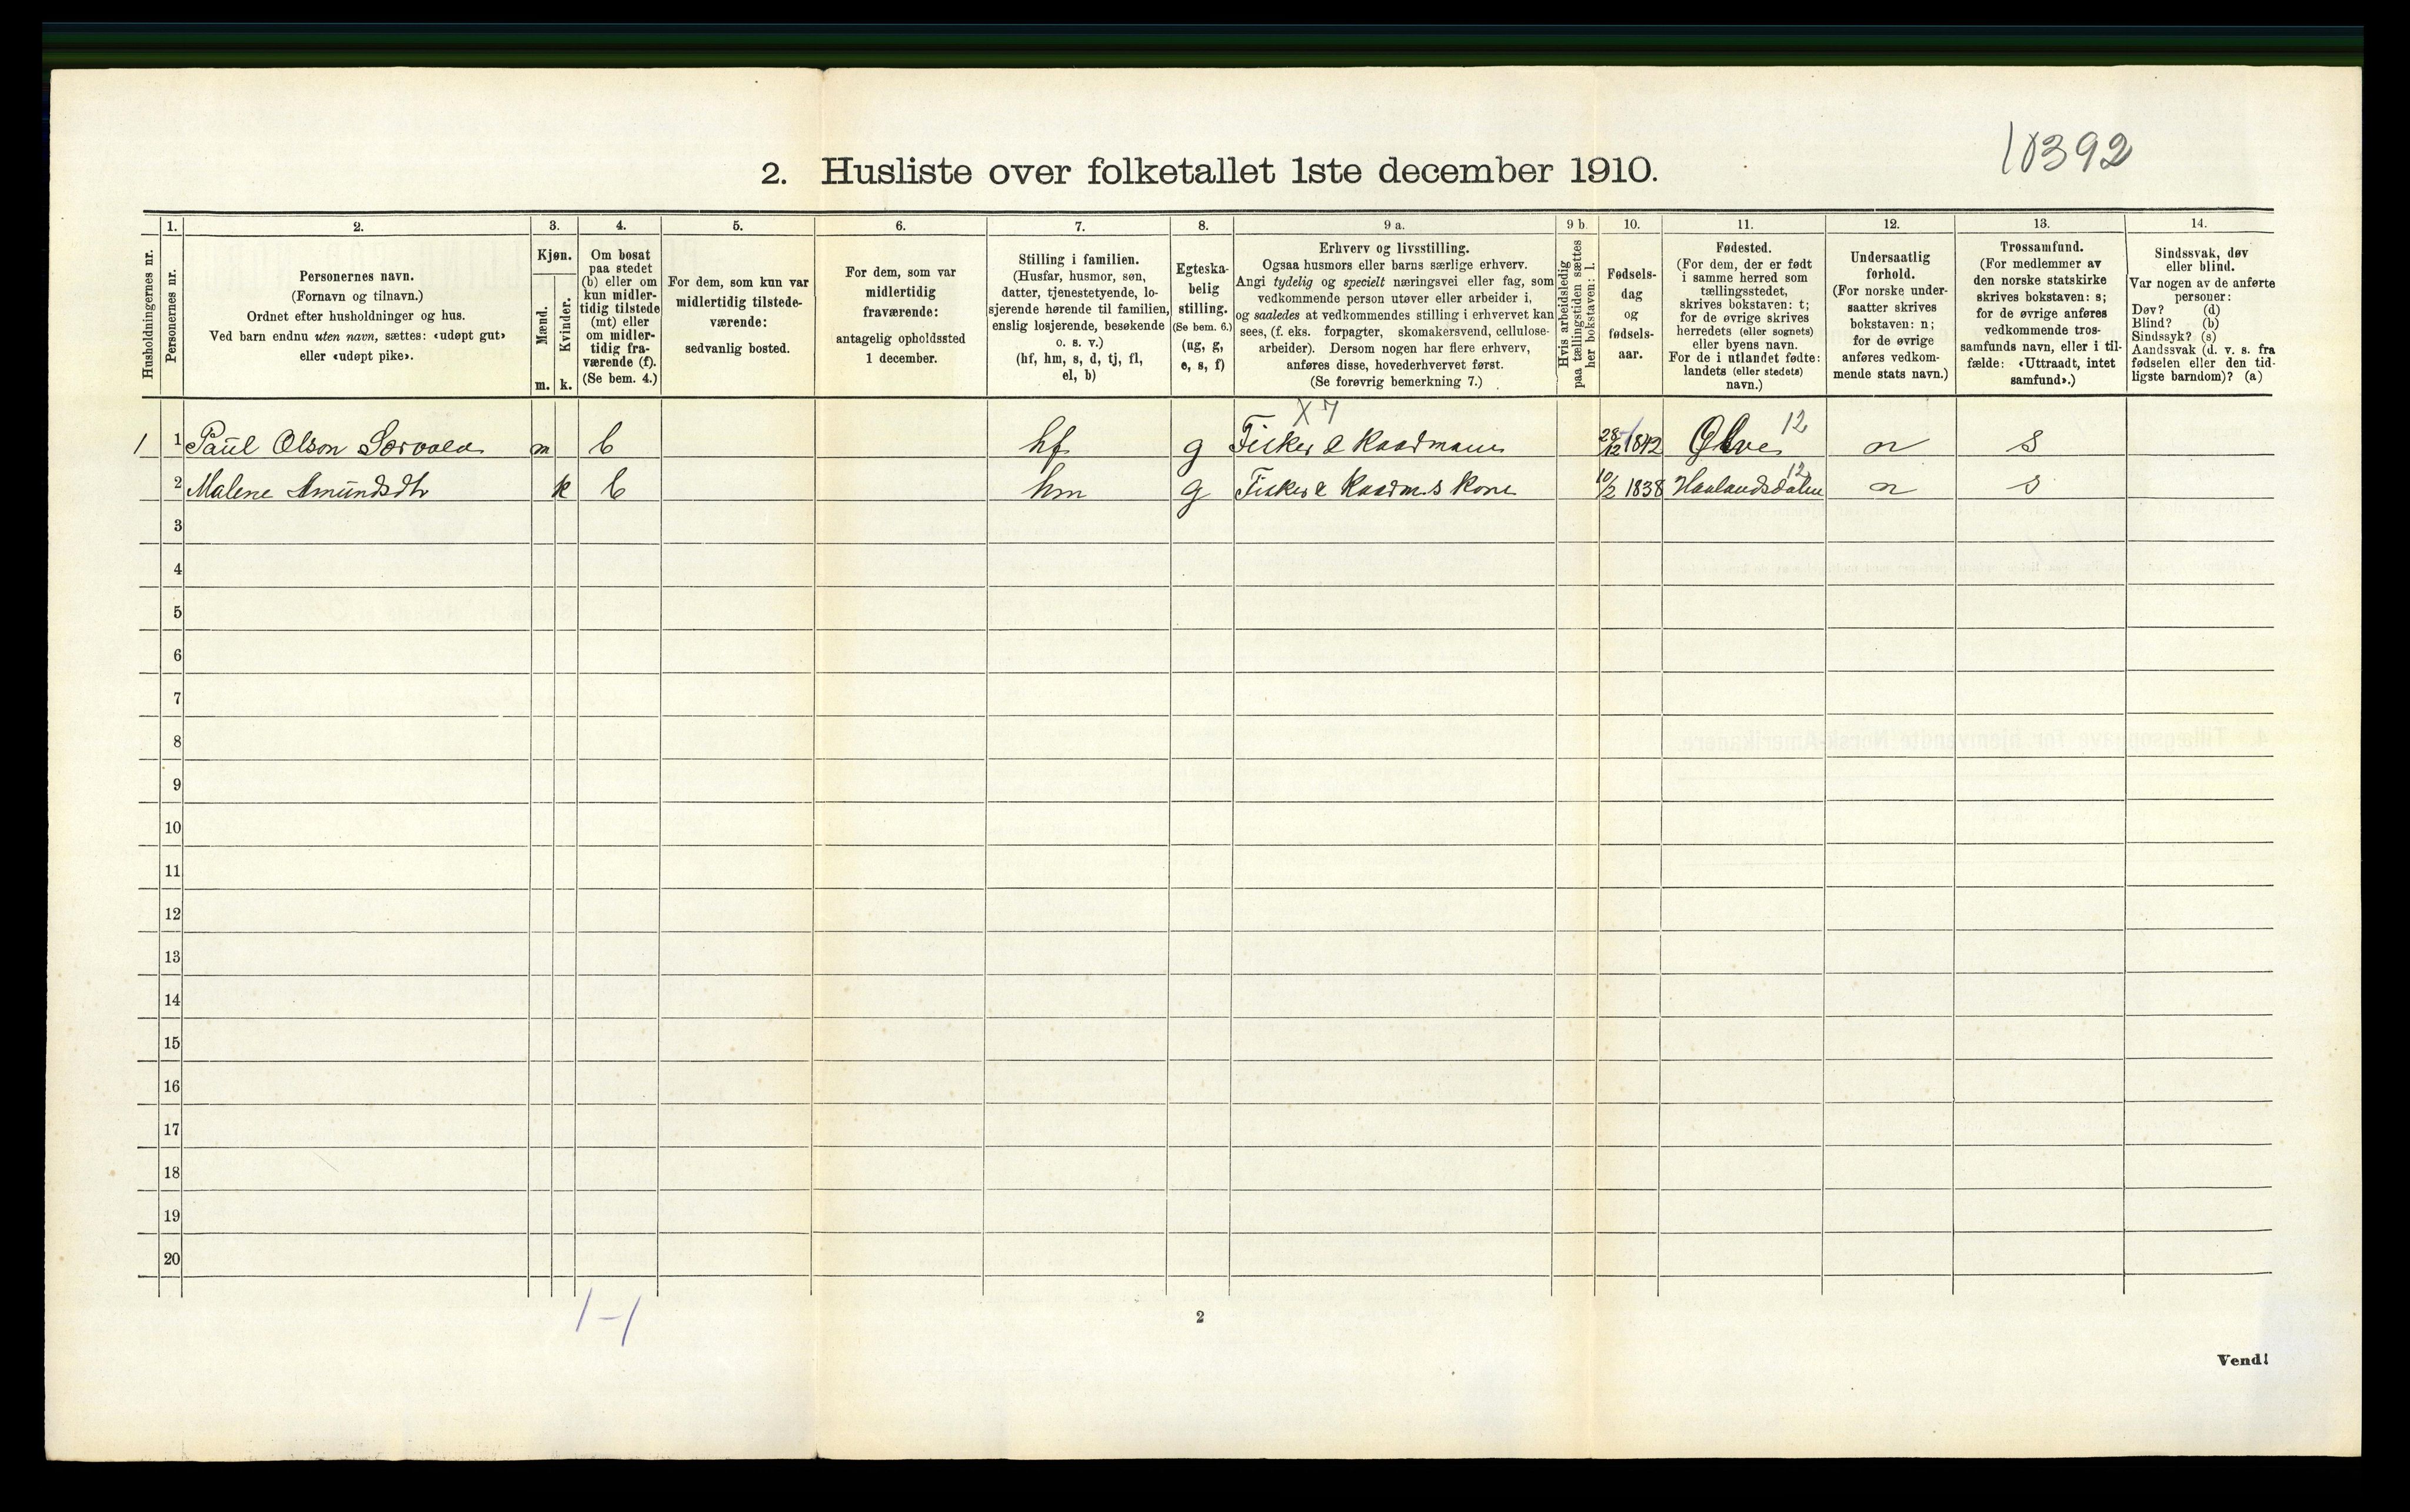 10392
2. Husliste over folketallet 1ste december 1910.
Husholdningernes nr.
1.
Personernes nr.
2.
Personernes navn.
(Fornavn og tilnavn.)
Ordnet efter husholdninger og hus.
Ved barn endnu uten navn, sættes: «udøpt gut»
eller «udøpt pike».
3.
Kjøn.
Mænd.
Kvinder.
m. k.
4.
Om bosat
paa stedet
(b) eller om
kun midler-
tidig tilstede
(mt) eller
om midler-
tidig fra-
værende (f).
(Se bem. 4.)
5.
For dem, som kun var
midlertidig tilstede-
værende:
sedvanlig bosted.
6.
For dem, som var
midlertidig
fraværende:
antagelig opholdssted
1 december.
7.
Stilling i familien.
(Husfar, husmor, søn,
datter, tjenestetyende, lo-
sjerende hørende til familien,
enslig losjerende, besøkende
o. s. v.)
(hf, hm, s, d, tj, fl,
el, b)
8.
Egteska-
belig
stilling.
(Se bem. 6.)
(ug, g,
e, s, f)
9 a.
Erhverv og livsstilling.
Ogsaa husmors eller barns særlige erhverv.
Angi tydelig og specielt næringsvei eller fag, som
vedkommende person utøver eller arbeider i,
og saaledes at vedkommendes stilling i erhvervet kan
sees, (f. eks. forpagter, skomakersvend, cellulose-
arbeider). Dersom nogen har flere erhverv,
anføres disse, hovederhvervet først.
(Se forøvrig bemerkning 7.)
9 b.
Hvis arbeidsledig
paa tællingstiden sættes
her bokstaven: l.
10.
Fødsels-
dag
og
fødsels-
aar.
11.
Fødested.
(For dem, der er født
i samme herred som
tællingsstedet,
skrives bokstaven: t;
for de øvrige skrives
herredets (eller sognets)
eller byens navn.
For de i utlandet fødte:
landets (eller stedets)
navn.)
12.
Undersaatlig
forhold.
(For norske under-
saatter skrives
bokstaven: n;
for de øvrige
anføres vedkom-
mende stats navn.)
13.
Trossamfund.
(For medlemmer av
den norske statskirke
skrives bokstaven: s;
for de øvrige anføres
vedkommende tros-
samfunds navn, eller i til-
fælde: «Uttraadt, intet
samfund».)
14.
Sindssvak, døv
eller blind.
Var nogen av de anførte
personer:
Døv? (d)
Blind? (b)
Sindssyk? (s)
Aandssvak (d. v. s. fra
fødselen eller den tid-
ligste barndom)? (a)
X 7
1 1 Paul Olson Sørvold m b hf g Fisker & Kaarmann 28/12 1842 Ølve 12 n s
2 Malene Amundsdtr k b hm g Fisker & Kaarm.s Kone 10/2 1838 Haalandsdalen 12 n s
3
4
5
6
7
8
9
10
11
12
13
14
15
16
17
18
19
20
1-1
2
Vend!